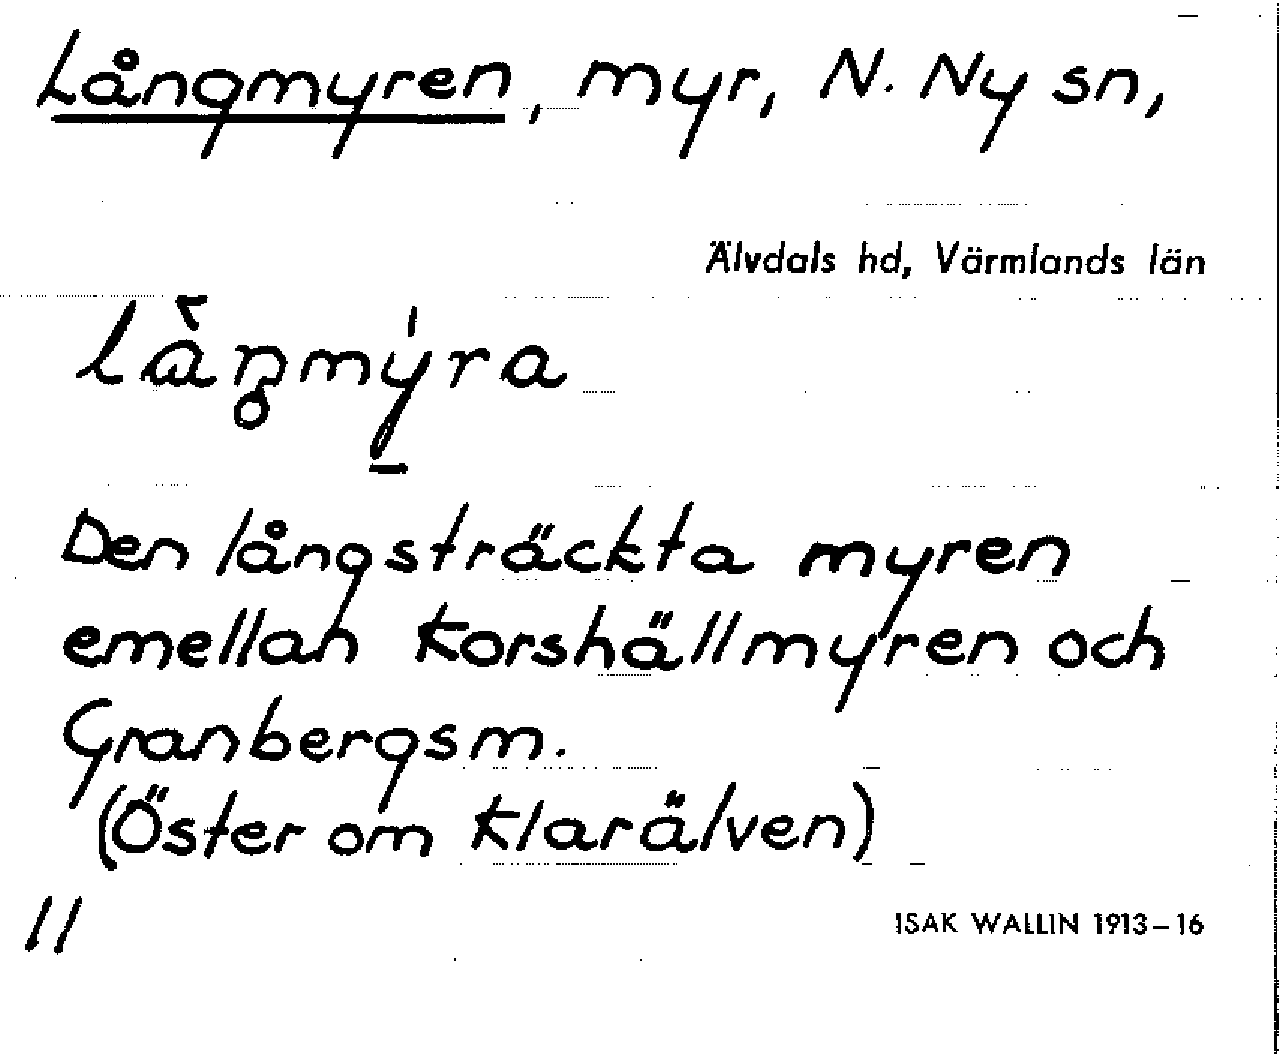 Långmyren, myr, N. Ny sn,
Älvdals hd, Värmlands län
Den långsträckta myren
emellan Korshällmyren och
Granbergsm.
(Öster om Klarälven)
11
ISAK WALLIN 1913–16